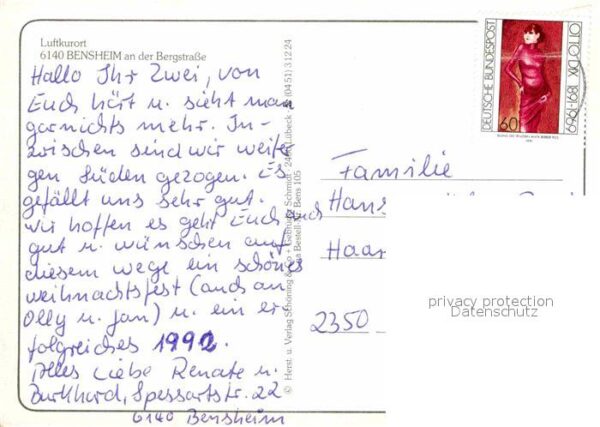 Luftkurort
6140 BENSHEIM an der Bergstraße
Hallo Ihr Zwei, von
Euch hört u. sieht man
garnichts mehr. In-
zwischen sind wir weiter
gen Süden gezogen. Es
gefällt uns sehr gut.
Wir hoffen es geht Euch auch
gut u. wünschen auf
diesem wege ein schönes
weihnachtsfest (auch an
Olly u. Jan) u. ein er-
folgreiches 1992.
Alles Liebe Renate u.
Burkhard, Spessartstr. 22
6140 Bensheim
© Herst. u. Verlag Schöning & Co + Gebrüder Schmidt · 2400 Lübeck · (0451) 31224
Bestell-Nr. Bens 105
DEUTSCHE BUNDESPOST
60
OTTO DIX 1891-1969
Familie
Hans
Haar
2350
privacy protection
Datenschutz